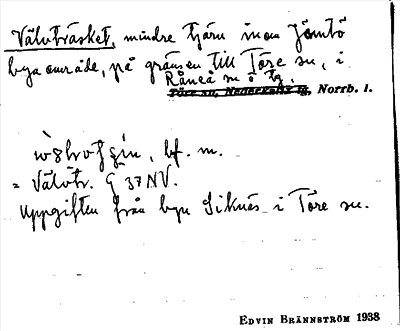 Välvträsket, mindre tjärn inom Jämtö
bya område, på gränsen till Töre sn, i
Råneå sn o tg.
Töre sn, Nederkalix tg, Norrb. l.
bf. m.
= Välvtr. G 37 NV.
Uppgiften från byn Siknäs i Töre sn.
EDVIN BRÄNNSTRÖM 1938